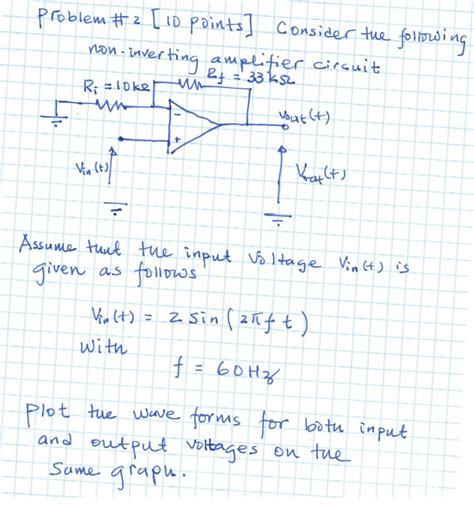 Problem #2 [10 points] Consider the following
non-inverting amplifier circuit
Rf = 33kΩ
Ri = 10kΩ
-
+
Vout(t)
Vin(t)
Vout(t)
Assume that the input voltage Vin(t) is
given as follows
Vin(t) = 2 sin(2πft)
with
f = 60Hz
Plot the wave forms for both input
and output voltages on the
same graph.